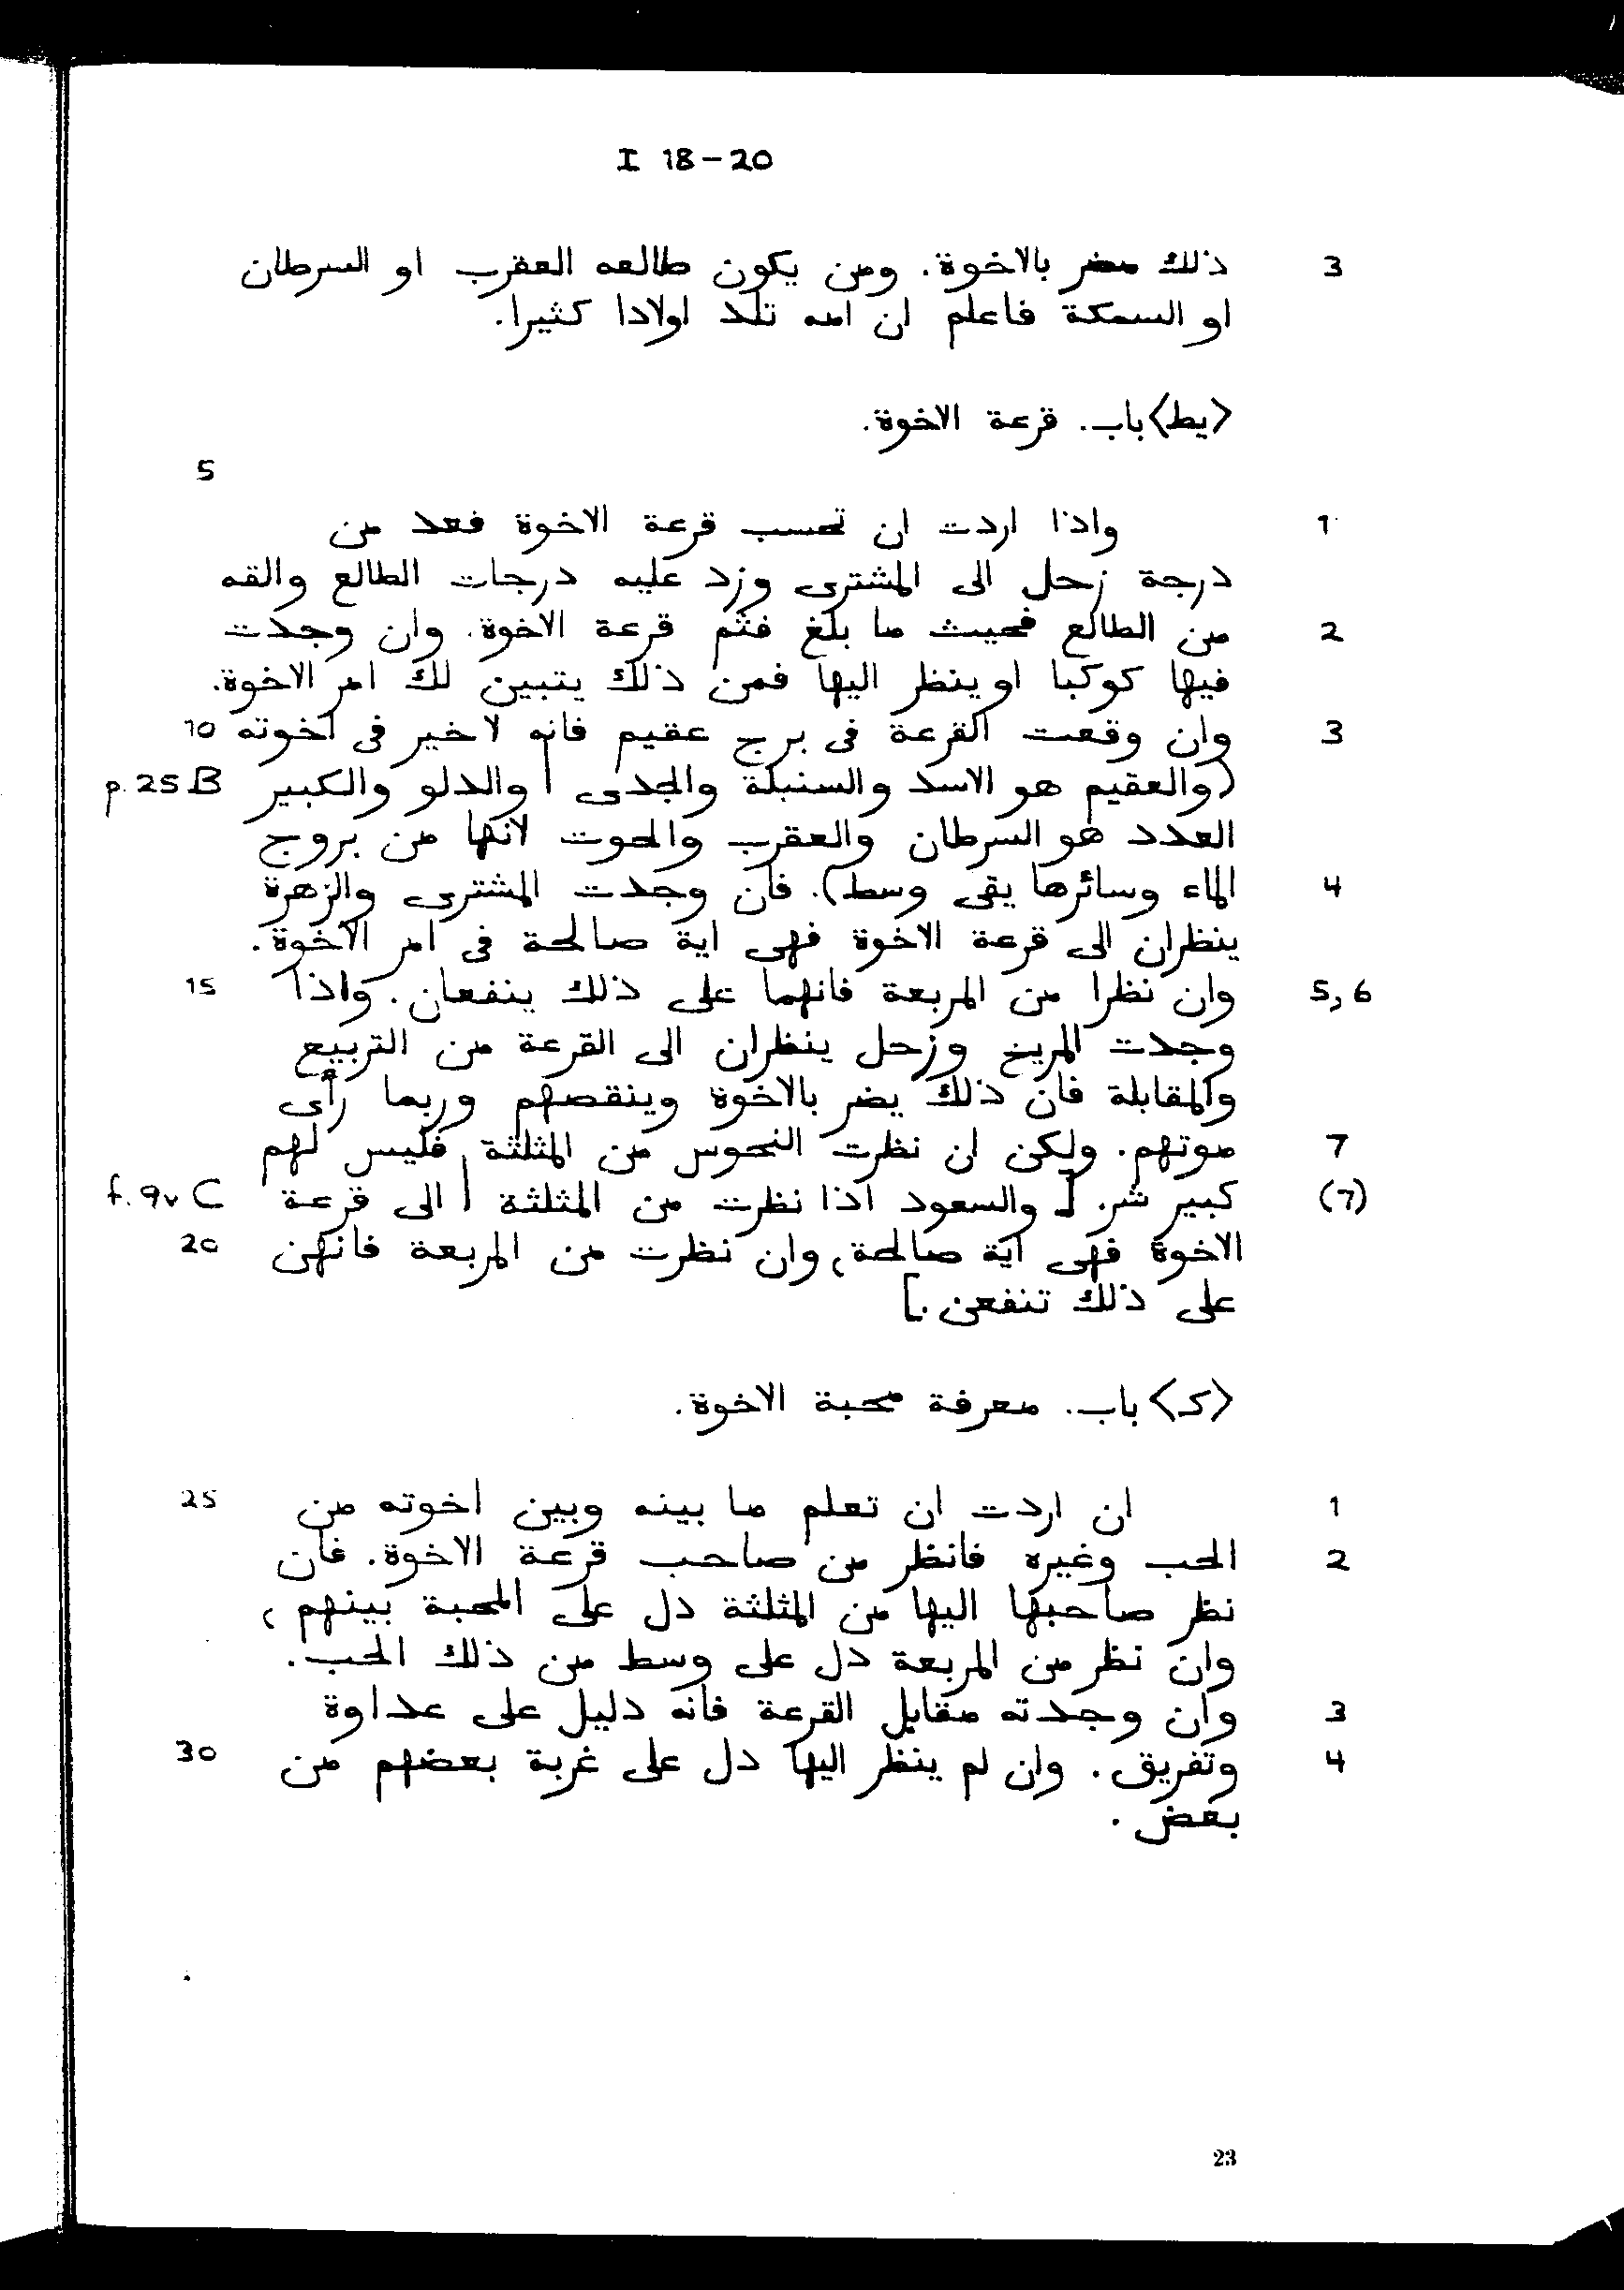 I 18-20
3 ذلك مضر بالاخوة. ومن يكون طالعه العقرب او السرطان
او السمكة فاعلم ان امه تلد اولادا كثيرا.
<يط> باب. قرعة الاخوة.
5
1 واذا اردت ان تحسب قرعة الاخوة فعد من
درجة زحل الى المشترى وزد عليه درجات الطالع والقه
2 من الطالع فحيث ما بلغ فثم قرعة الاخوة. وان وجدت
فيها كوكبا او ينظر اليها فمن ذلك يتبين لك امر الاخوة.
3 وان وقعت القرعة فى برج عقيم فانه لا خير فى اخوته 10
(والعقيم هو الاسد والسنبلة والجدى | والدلو والكبير p. 25 B
العدد هو السرطان والعقرب والحوت لانها من بروج
4 الماء وسائرها يقى وسط). فان وجدت المشترى والزهرة
ينظران الى قرعة الاخوة فهى اية صالحة فى امر الاخوة.
5, 6 وان نظرا من المربعة فانهما على ذلك ينفعان. واذا 15
وجدت المريخ وزحل ينظران الى القرعة من التربيع
والمقابلة فان ذلك يضر بالاخوة وينقصهم وربما رأى
7 موتهم. ولكن ان نظرت النحوس من المثلثة فليس لهم
(7) كبير شر. [والسعود اذا نظرت من المثلثة | الى قرعة f. 9v C
الاخوة فهى اية صالحة، وان نظرت من المربعة فانهن 20
على ذلك تنفعن.]
<ك> باب. معرفة محبة الاخوة.
1 ان اردت ان تعلم ما بينه وبين اخوته من 25
2 الحب وغيره فانظر من صاحب قرعة الاخوة. فان
نظر صاحبها اليها من المثلثة دل على المحبة بينهم،
وان نظر من المربعة دل على وسط من ذلك الحب.
3 وان وجدته مقابل القرعة فانه دليل على عداوة
4 وتفريق. وان لم ينظر اليها دل على غربة بعضهم من 30
بعض.
23